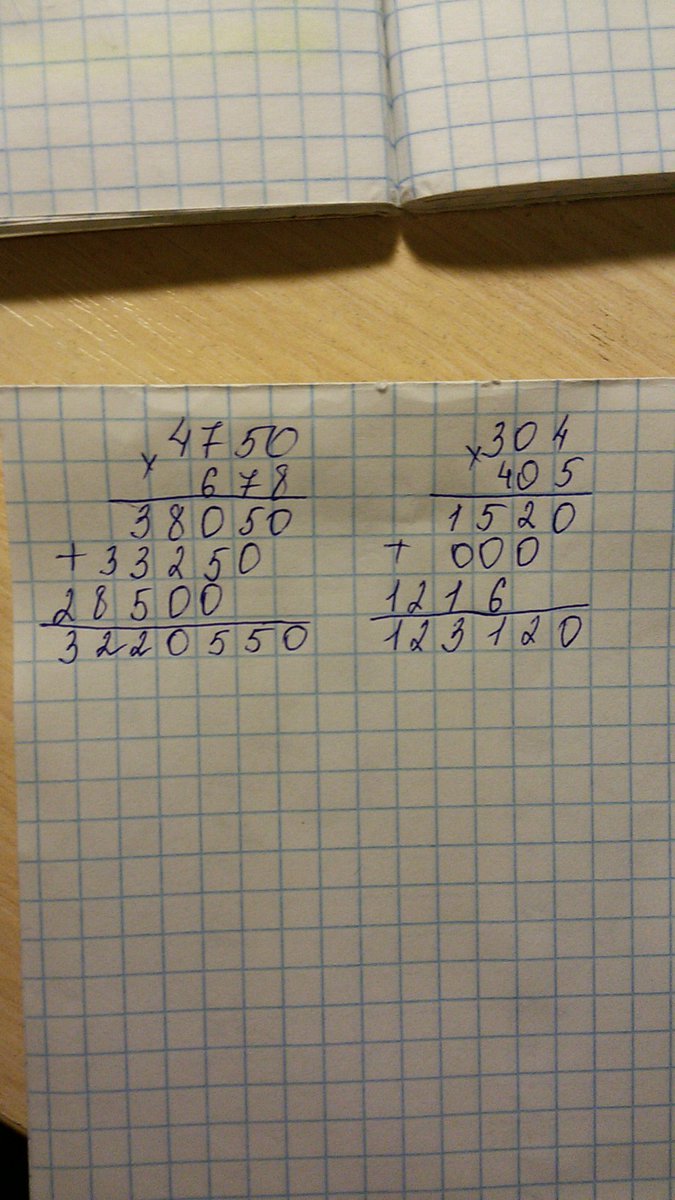 4750
× 678
38050
+ 33250
28500
3220550
304
× 405
1520
+ 000
1216
123120